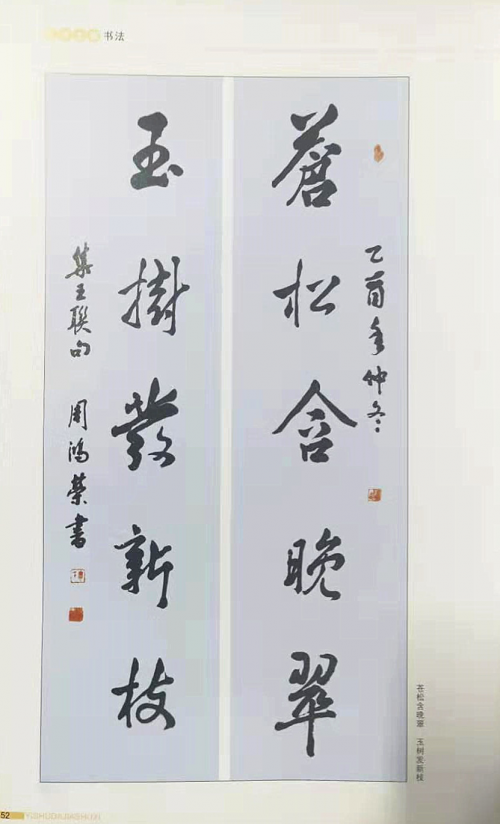 书法
乙酉年仲冬
蒼松含晚翠
玉樹發新枝
集王聯句 周鴻榮書
苍松含晚翠 玉树发新枝
52